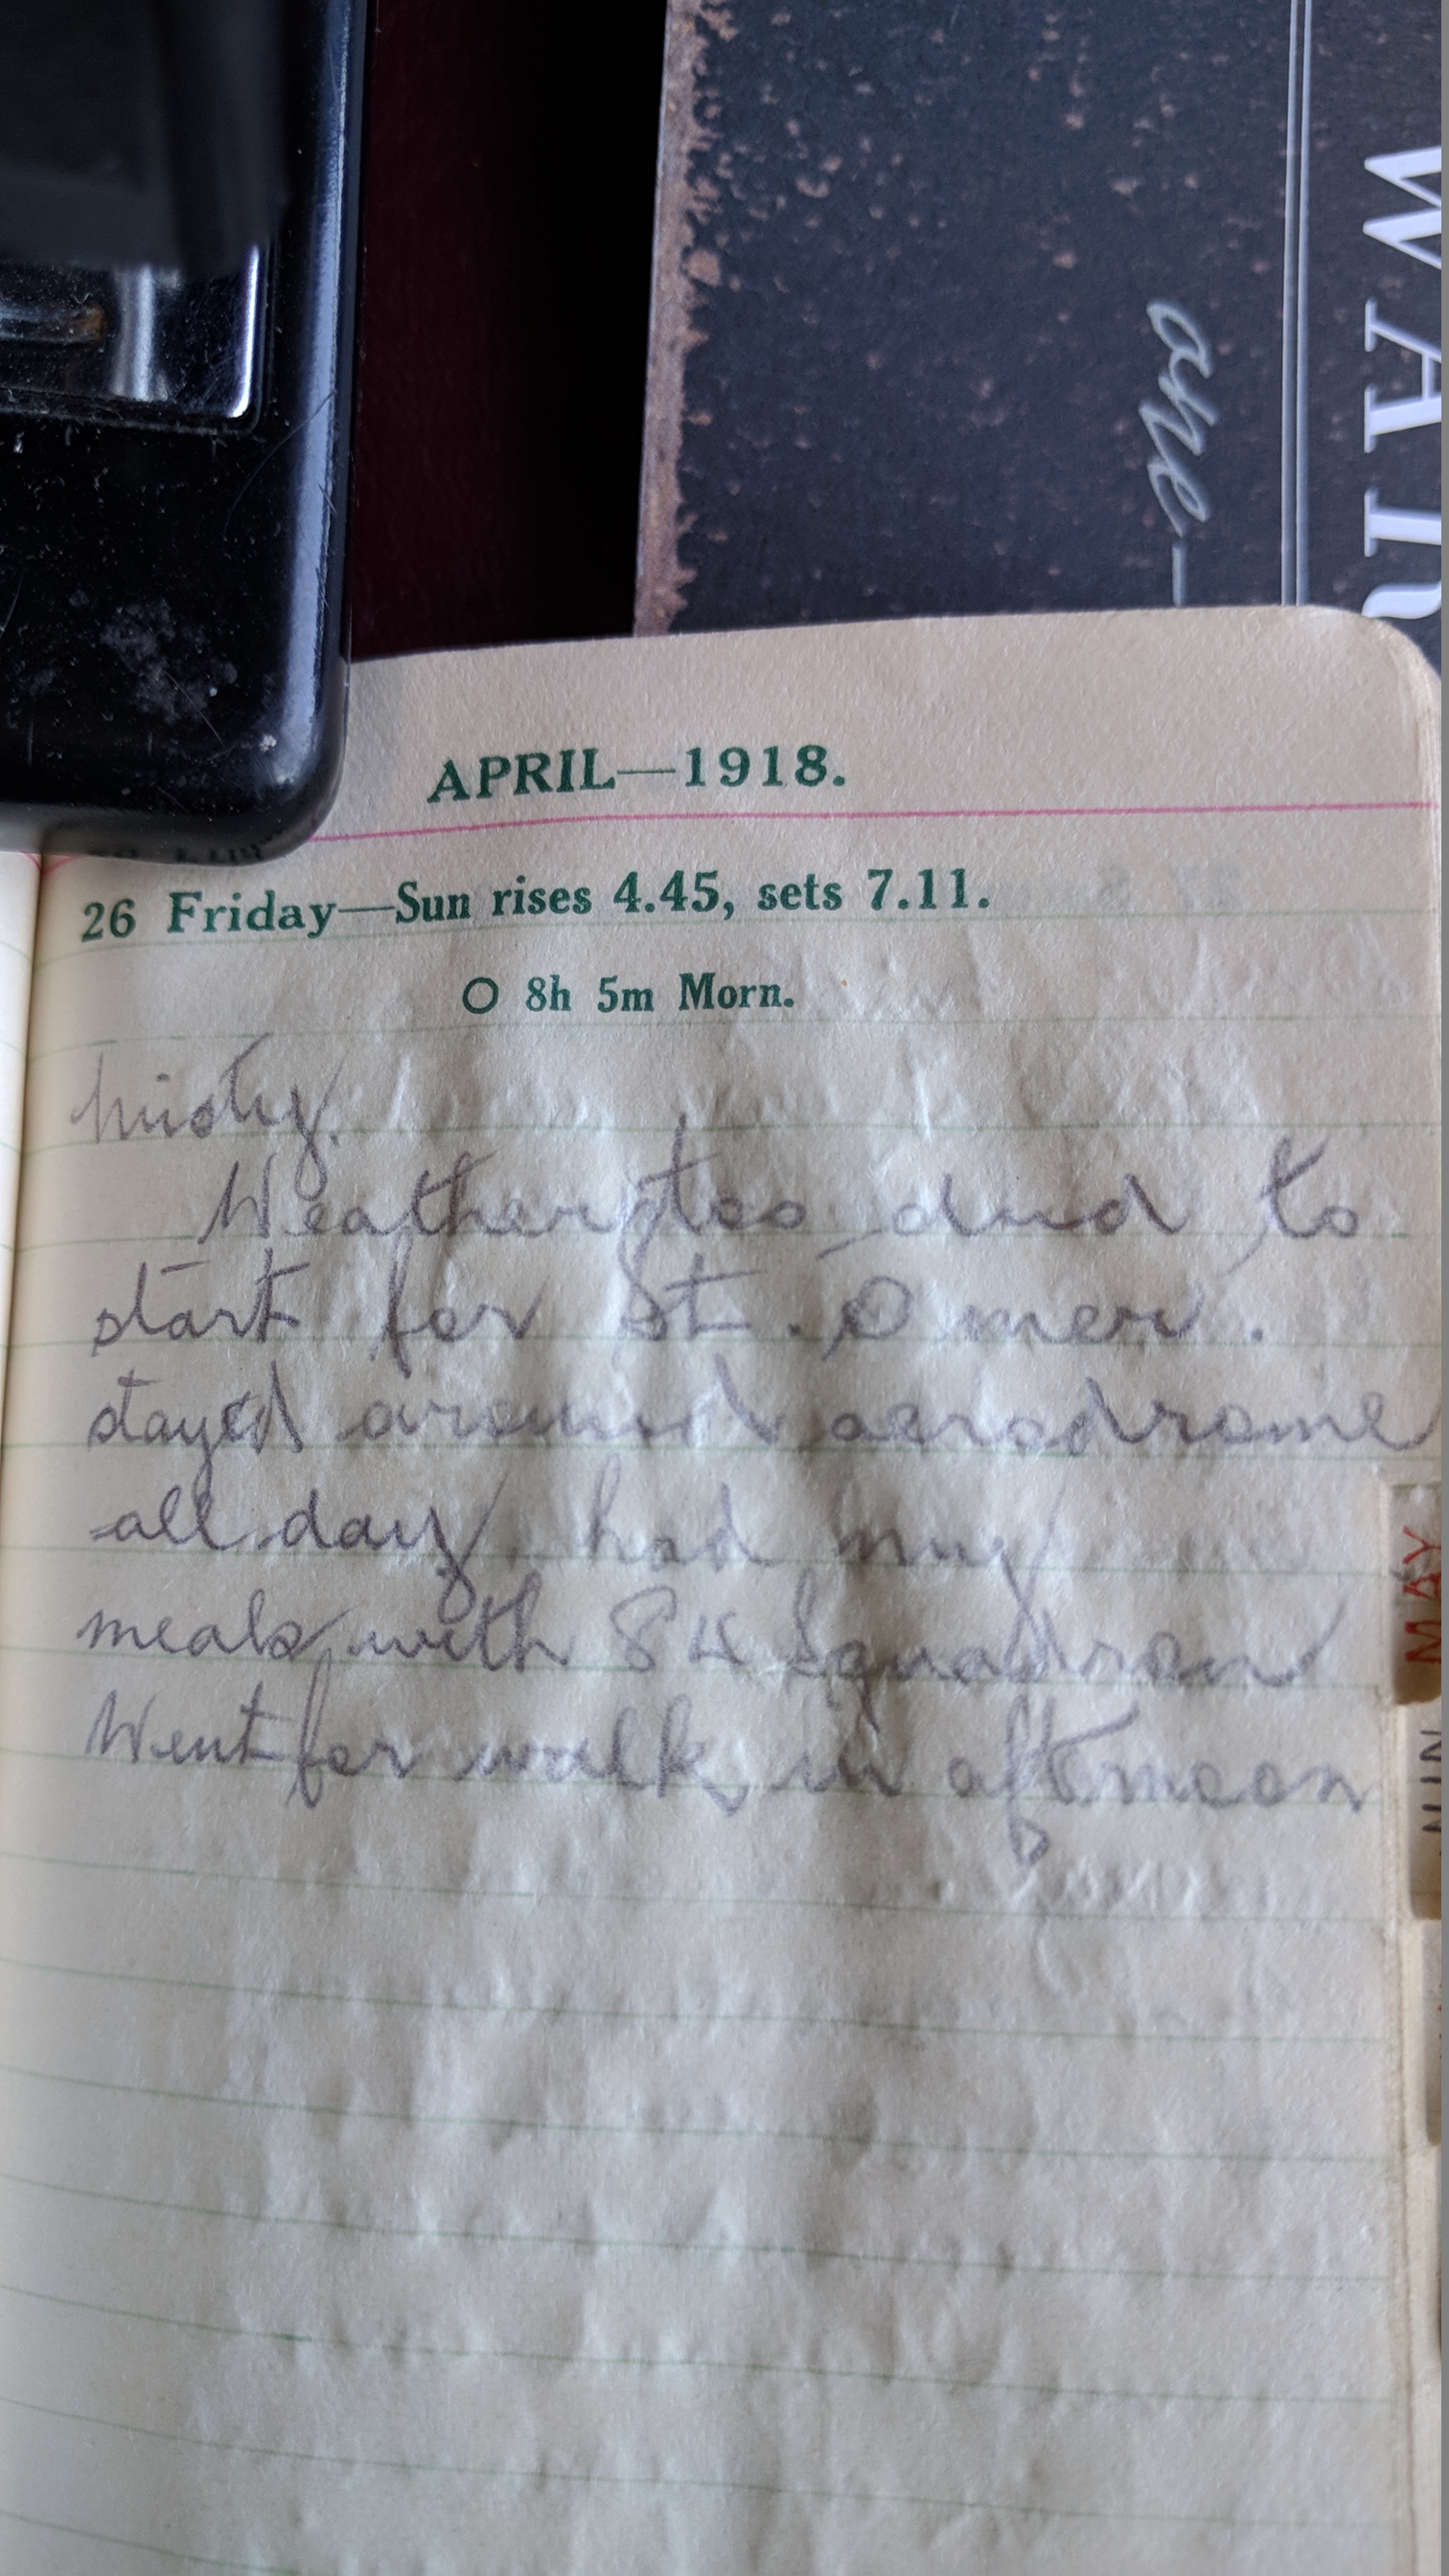 WAR
one-
APRIL—1918.
26 Friday—Sun rises 4.45, sets 7.11.
O 8h 5m Morn.
Misty.
Weather too dud to
start for St. Omer.
stayed around aerodrome
all day. had my
meals with 84 Squadron
Went for walk in afternoon
MAY
JUN